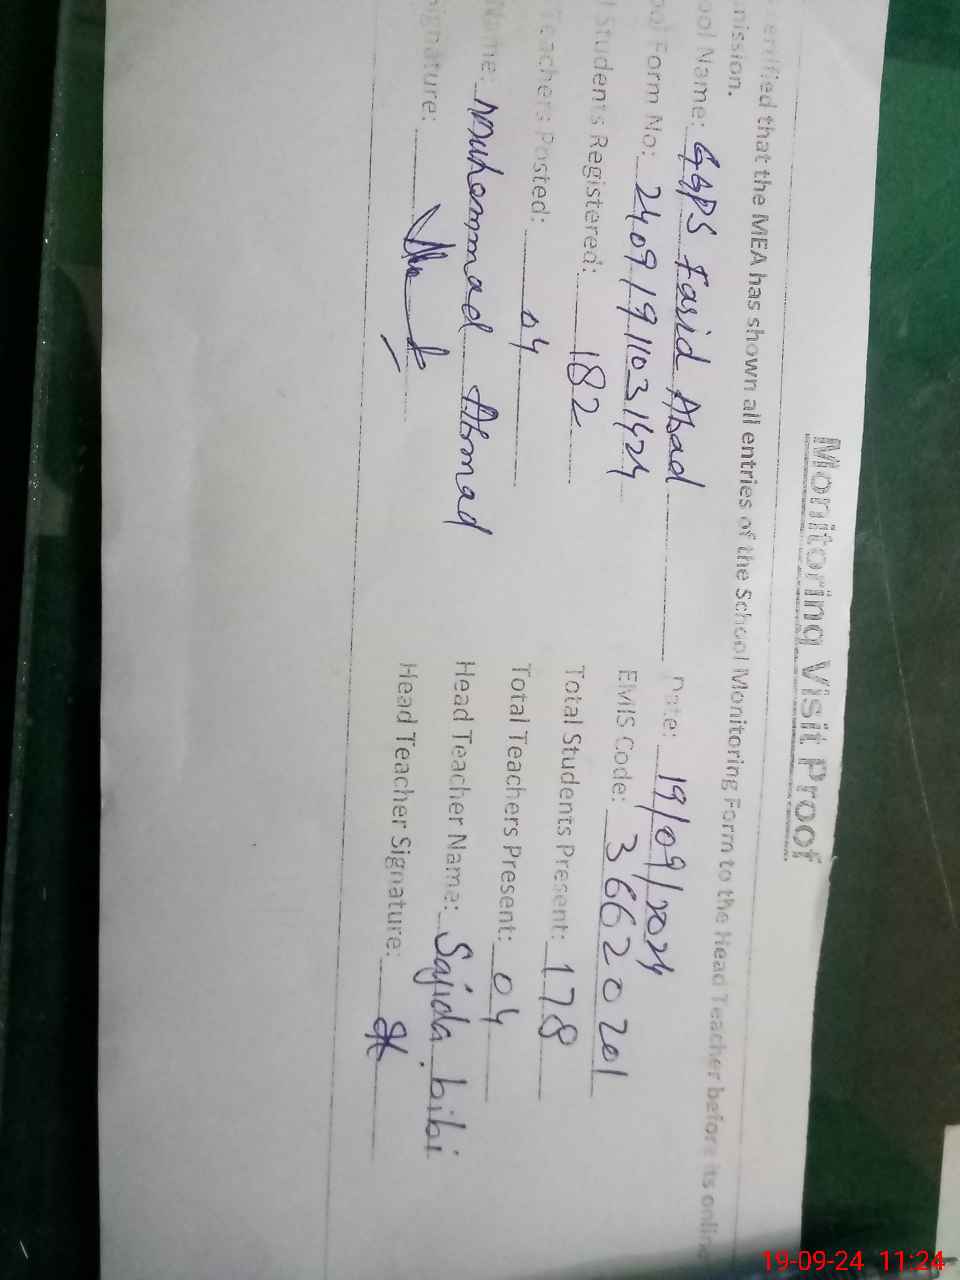 Monitoring Visit Proof
erified that the MEA has shown all entries of the School Monitoring Form to the Head Teacher before its online
mission.
ool Name: GGPS Farid Abad Date: 19/09/2024
ool Form No: 24091911031424 EMIS Code: 36620201
l Students Registered: 182 Total Students Present: 178
Teachers Posted: 04 Total Teachers Present: 04
Name: Muhammad Ahmad Head Teacher Name: Sajida bibi
ignature: Head Teacher Signature:
19-09-24 11:24